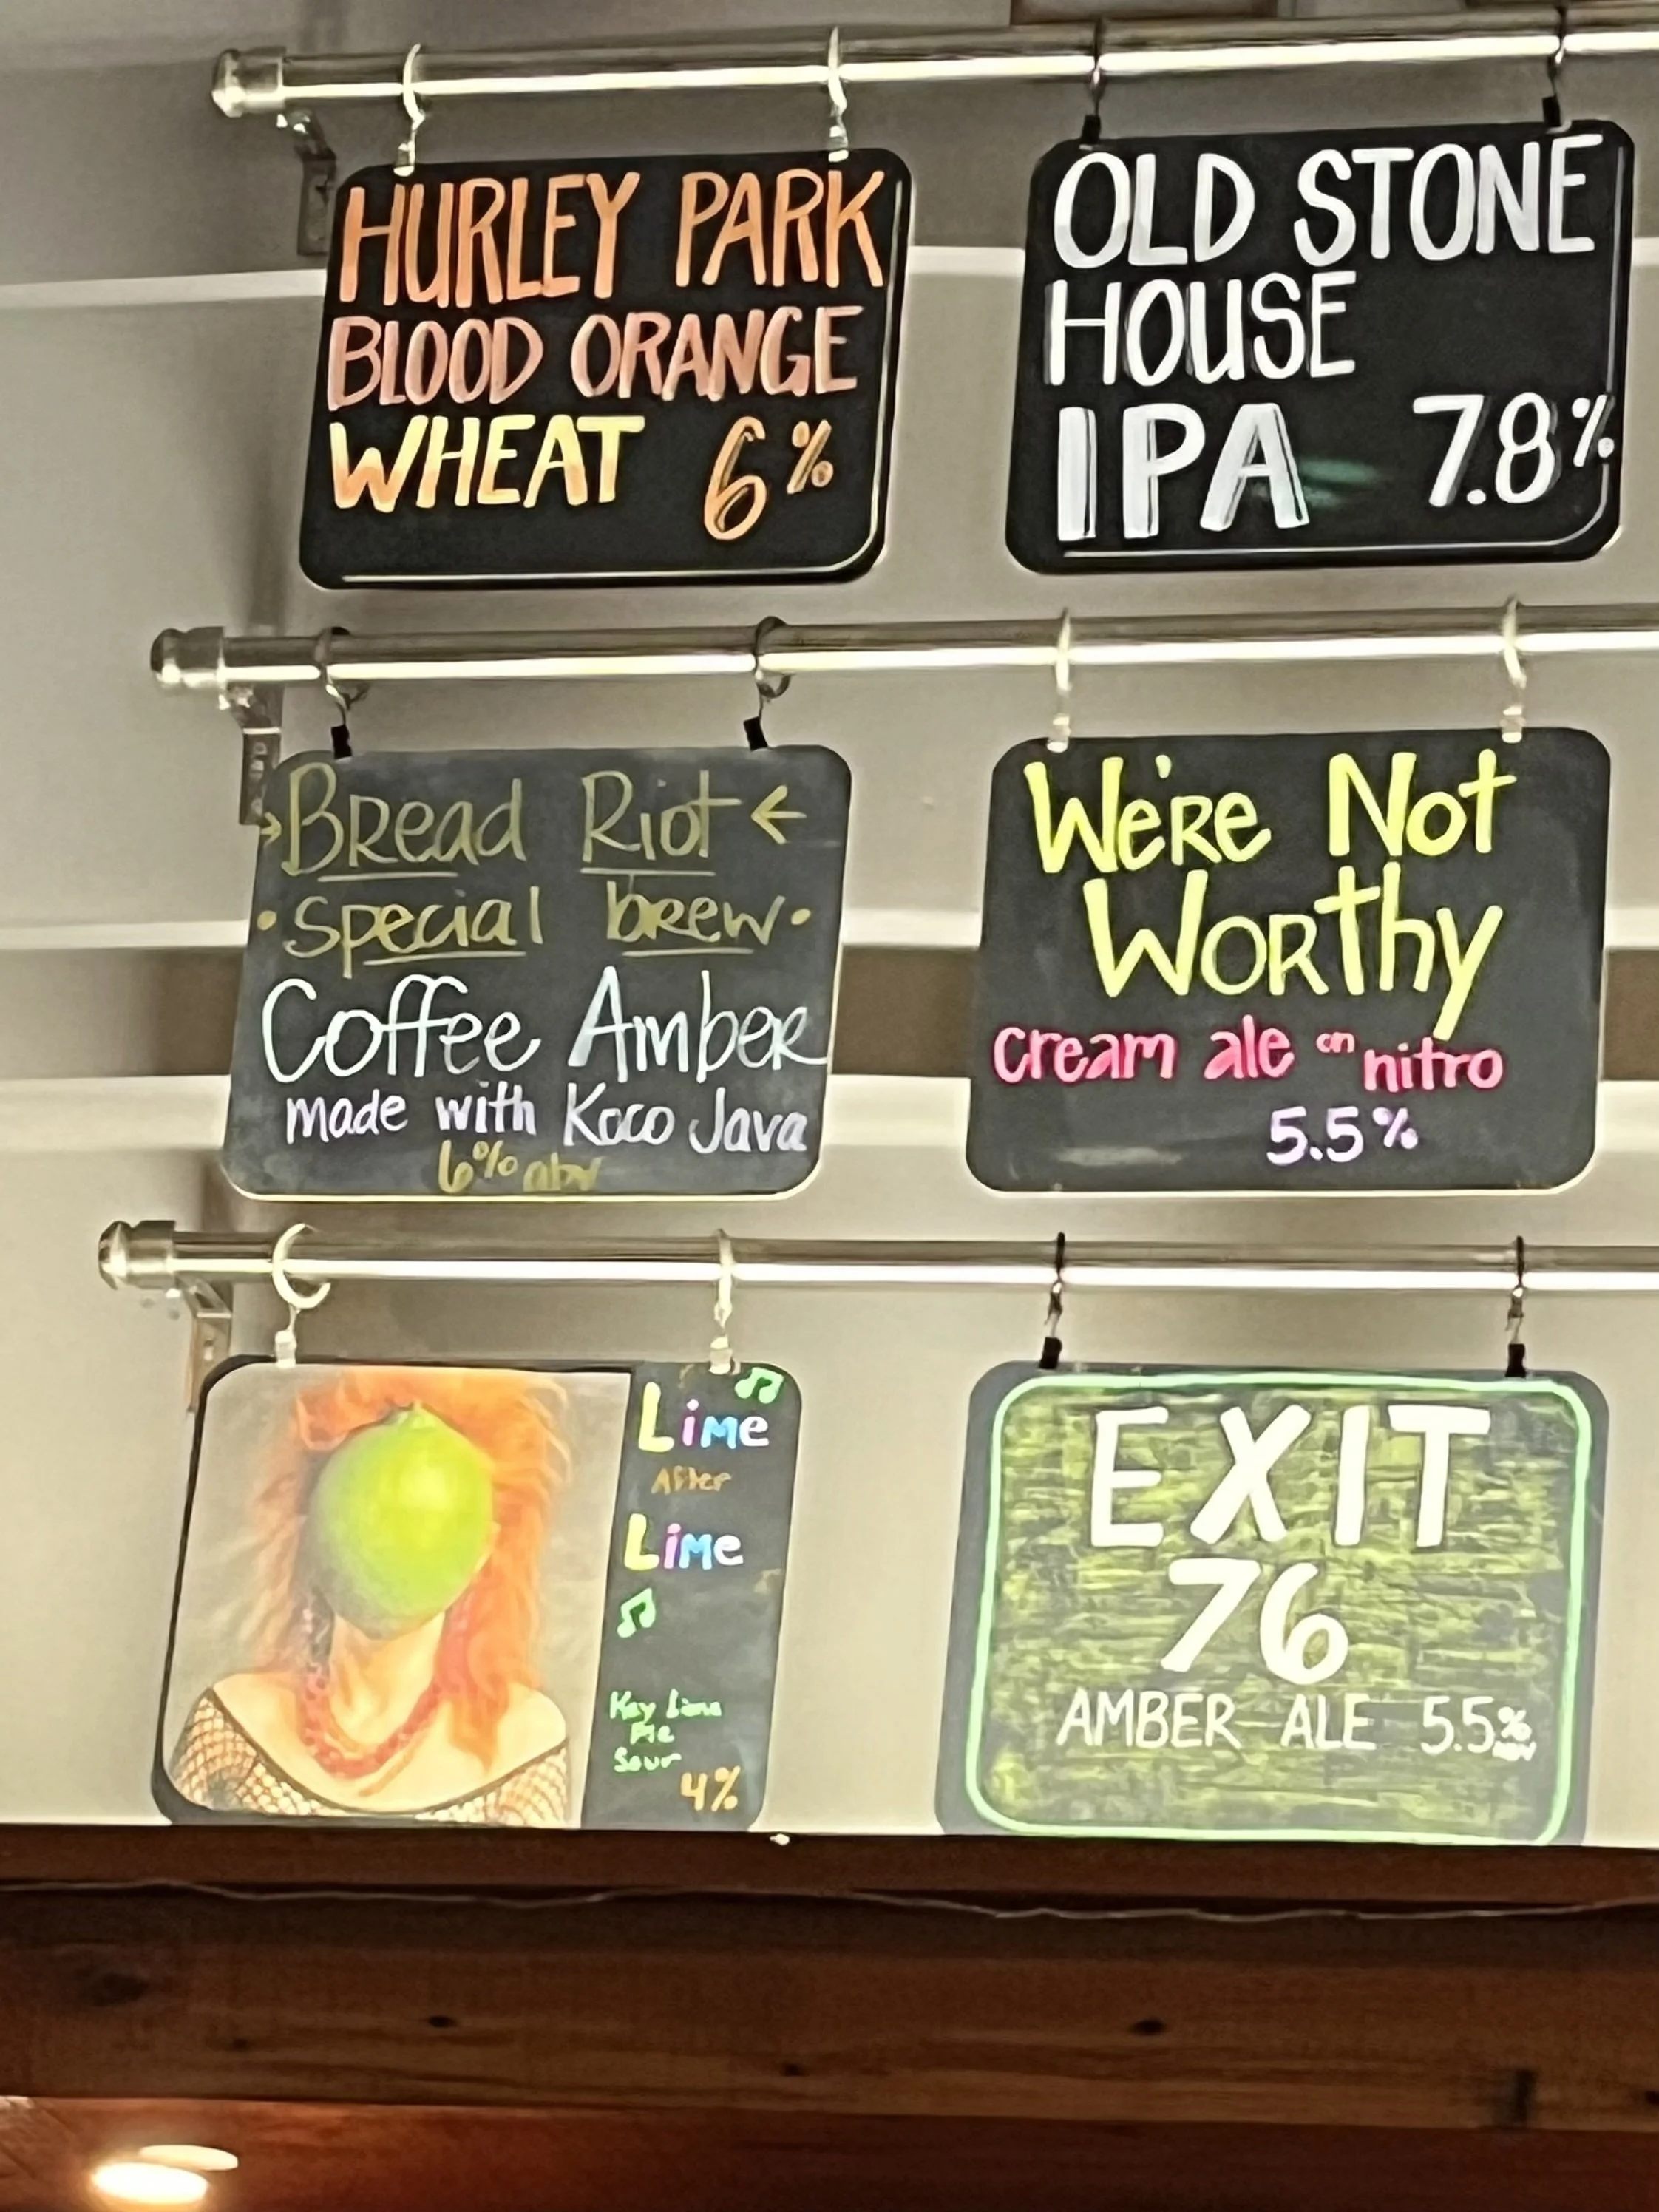 HURLEY PARK
BLOOD ORANGE
WHEAT 6%
OLD STONE
HOUSE
IPA 7.8%
→Bread Riot←
•special brew•
Coffee Amber
made with Koco Java
6% abv
We're Not
Worthy
cream ale on nitro
5.5%
Lime
After
Lime
Key Lime
Pie
Sour
4%
EXIT
76
AMBER ALE 5.5%
ABV